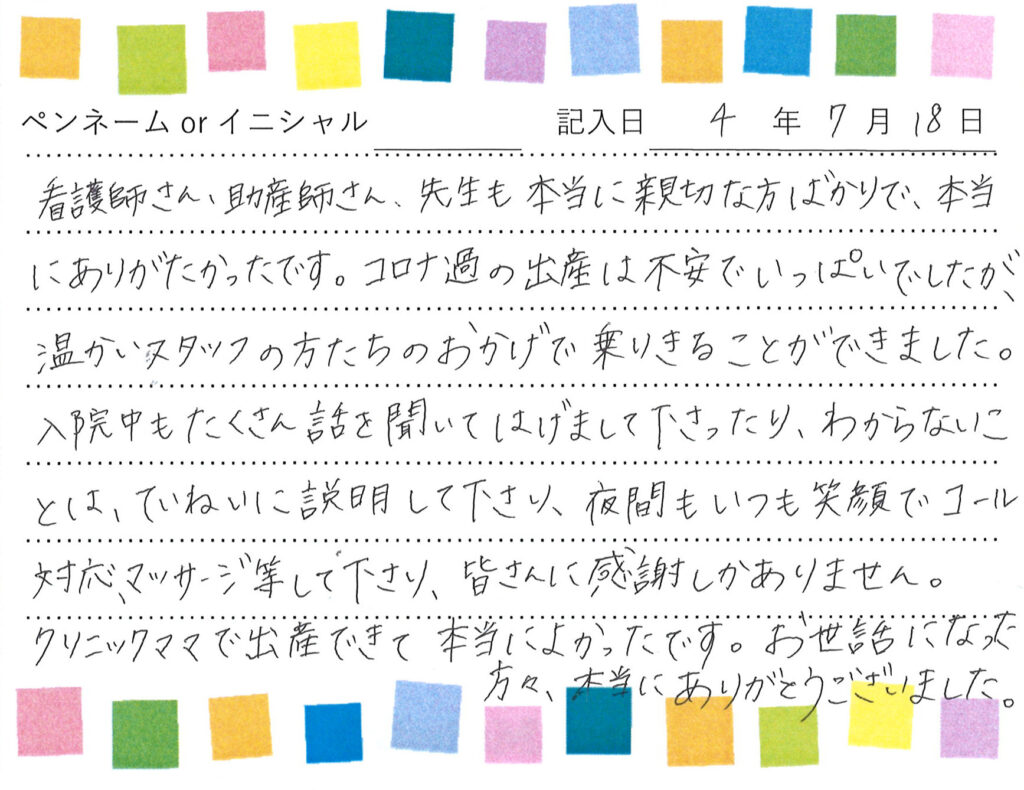 ペンネーム or イニシャル 記入日 4 年 7 月 18 日
看護師さん、助産師さん、先生も本当に親切な方ばかりで、本当
にありがたかったです。コロナ過の出産は不安でいっぱいでしたが、
温かいスタッフの方たちのおかげで乗りきることができました。
入院中もたくさん話を聞いてはげまして下さったり、わからないこ
とは、ていねいに説明して下さり、夜間もいつも笑顔でコール
対応、マッサージ等して下さり、皆さんに感謝しかありません。
クリニックママで出産できて本当によかったです。お世話になった
方々、本当にありがとうございました。